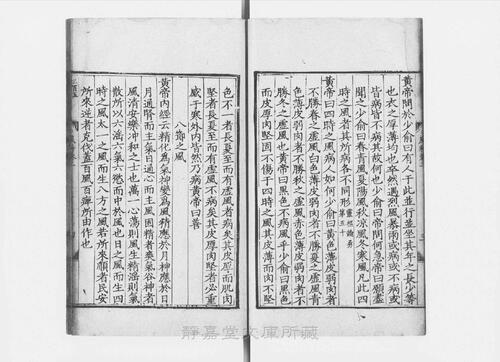 黃帝問於少俞曰有人于此並行並立其年之長少等
也衣之厚薄均也卒然遇烈風暴雨或病或不病或
皆病皆不病其故何也少俞曰帝問何急帝曰願盡
聞之少俞曰春青風夏陽風秋涼風冬寒風凡此四
時之風者其所病各不同形靈樞論勇第五十
黃帝曰四時之風病人如何少俞曰黃色薄皮弱肉者
不勝春之虛風白色薄皮弱肉者不勝夏之虛風青
色薄皮弱肉者不勝秋之虛風赤色薄皮弱肉者不
勝冬之虛風也黃帝曰黑色不病風乎少俞曰黑色
而皮厚肉堅固不傷于四時之風其皮薄而肉不堅
色不一者長夏至而有虛風者病矣其皮厚而肌肉
堅者長夏至而有虛風不病矣其皮厚肉堅者必重
感于寒外內皆然乃病黃帝曰善
八鄉之風
黃帝內經云精化為氣神變為風精應於月神應於日
月通腎而主氣日通心而主風因精者氣谷神者
風清安樂沖和之士也萬一心蕩則風生精淫則氣
散所以六淫六氣六慾而中於風也日之風而生四
時之風太一之風而生八方之風若所來順者民安
所來逆者克伐蓋百風而百所由作也
靜嘉堂文庫所藏